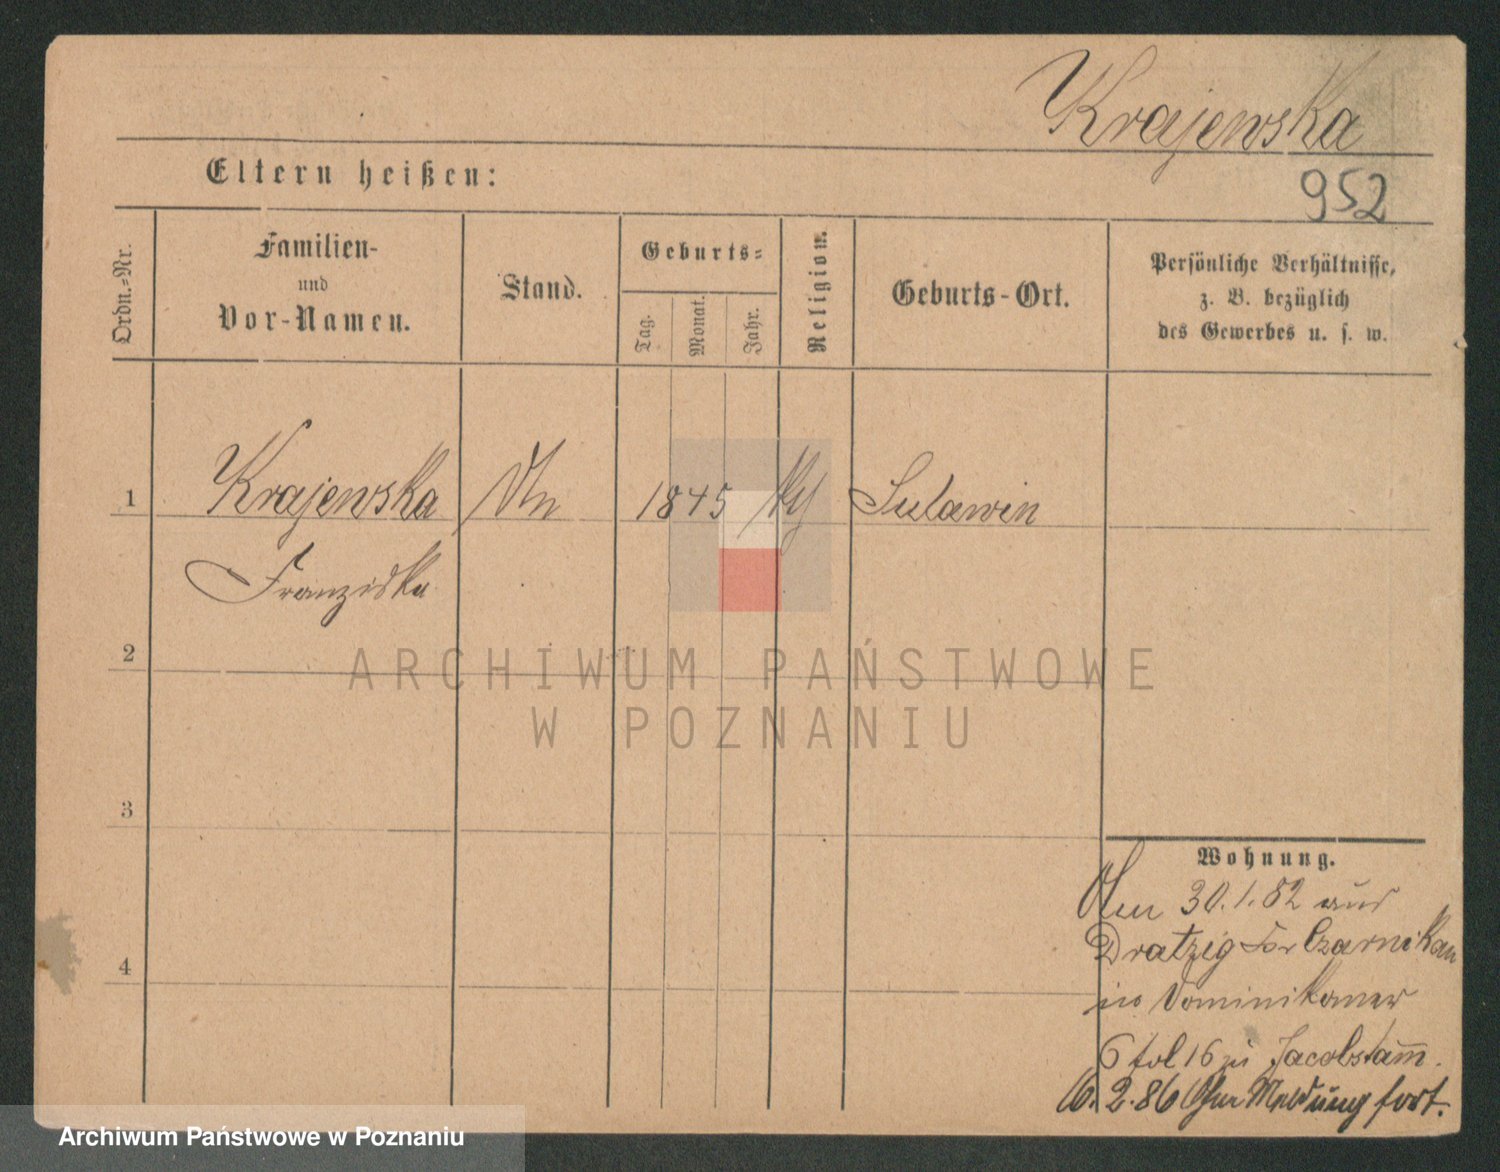 Krajewska
Eltern heißen:
952
Ordn.-Nr.
Familien-
und
Vor-Namen.
Stand.
Geburts-
Tag.
Monat.
Jahr.
Religion.
Geburts-Ort.
Persönliche Verhältnisse,
z. B. bezüglich
des Gewerbes u. s. w.
1 Krajewska 1845 Sulawin
Franziska
2
ARCHIWUM PAŃSTWOWE
W POZNANIU
3
Wohnung.
30.1.82 aus
Dratzig Czarnikau
in Dominikaner
6 fol 16
16.2.86 Ohne Meldung fort.
4
Archiwum Państwowe w Poznaniu